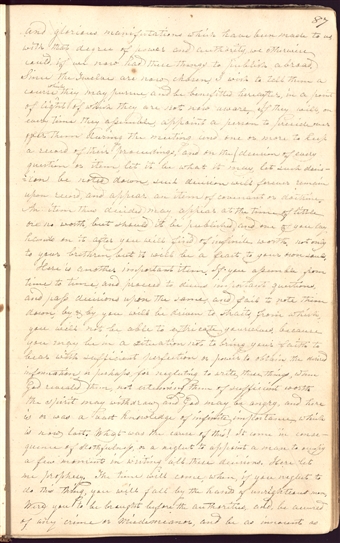 87
and glorious manifestations which have been made to us
with this degree of power and authority, we otherwise
could if we now had these things to publish abroad.
Since the Twelve are now chosen, I wish to tell them a
course they may pursue and be benefitted hereafter in a point
of light of which they are not now aware. If they will, on
each time they assemble, appoint a person to preside over
them during the meeting, and one or more to keep
a record of their proceedings, and on the decision of every
question or item, let it be what it may, let such decis-
ion be noted down, such decision will forever remain
upon record, and appear an item of covenant or doctrine.
An item thus decided may appear at the time of little
or no worth, but should it be published and one of you lay
hands on it after, you will find of infinite worth, not only
to your brethren, but it will be a feast to your own souls.
Here is another important item. If you assemble from
time to time, and proceed to discuss important questions,
and pass decisions upon the same, and fail to note them
down, by & by you will be driven to straits from which
you will not be able to extricate yourselves, because
you may be in a situation not to bring your faith to
bear with sufficient perfection or power to obtain the desired
information; or perhaps for neglecting to write these things when
God revealed them, not esteeming them of sufficient worth
the spirit may withdraw, and God may be angry, and there
is or was a vast knowledge of infinite importance, which
is now lost. What was the cause of this? It came in conse-
quence of slothfulness, or a neglect to appoint a man to occupy
a few moments in writing all these decisions. Here let
me prophesy. The time will come when, if you neglect to
do this thing, you will fall by the hands of unrighteous men.
Were you to be brought before the authorities, and be accused
of any crime or misdemeanor, and be as innocent as